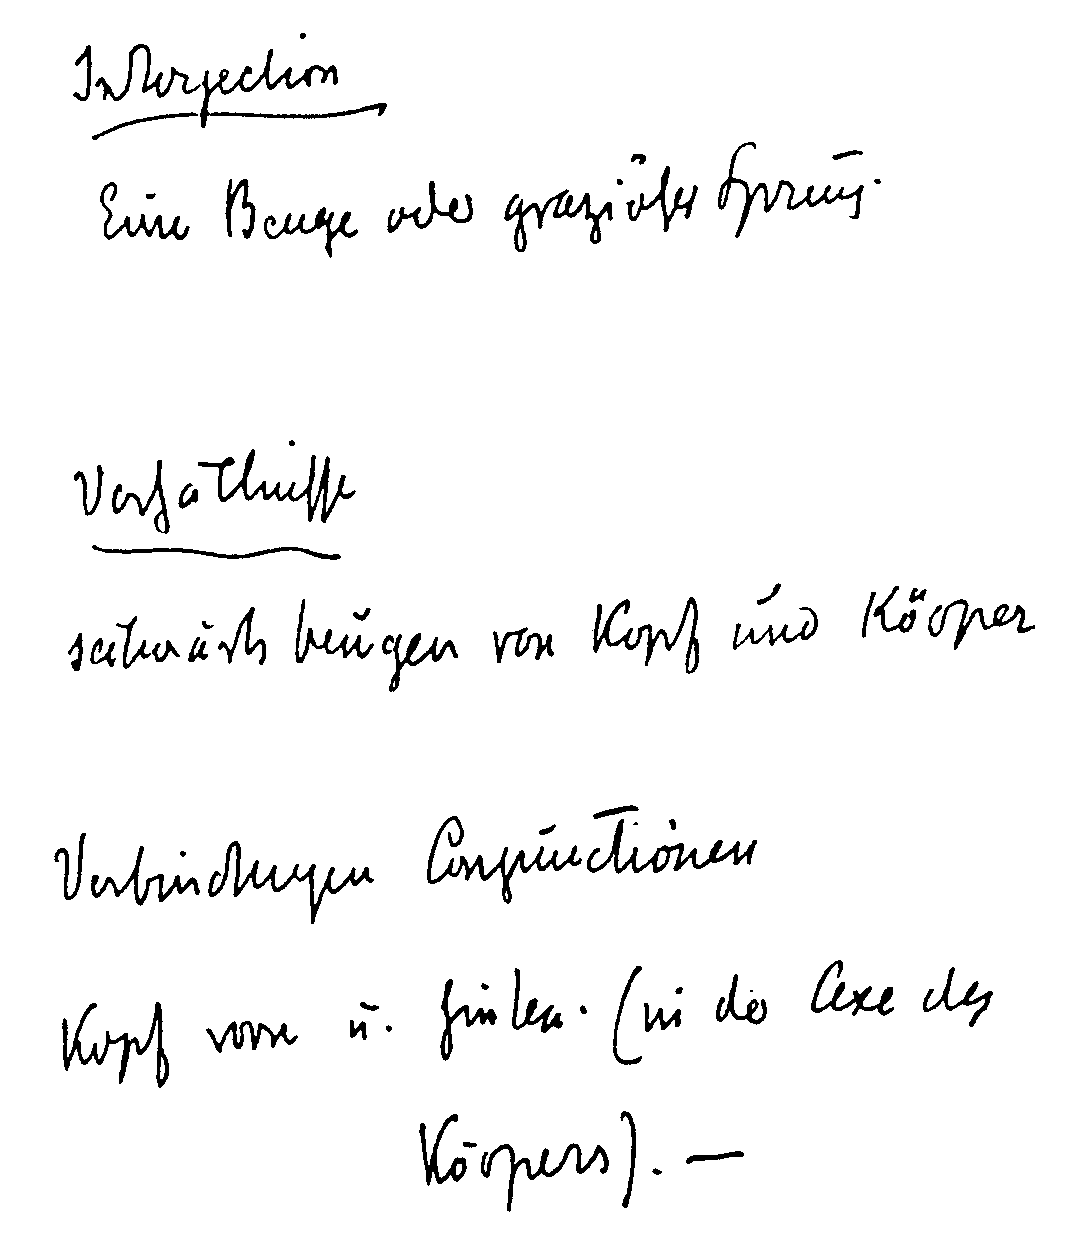 Interjection
Eine Beuge oder graziöser Sprung.
Verhältnisse
seitwärts beugen von Kopf und Körper
Verbindungen Conjunctionen
Kopf vorne u. hinten. (in der Axe des
Körpers). —